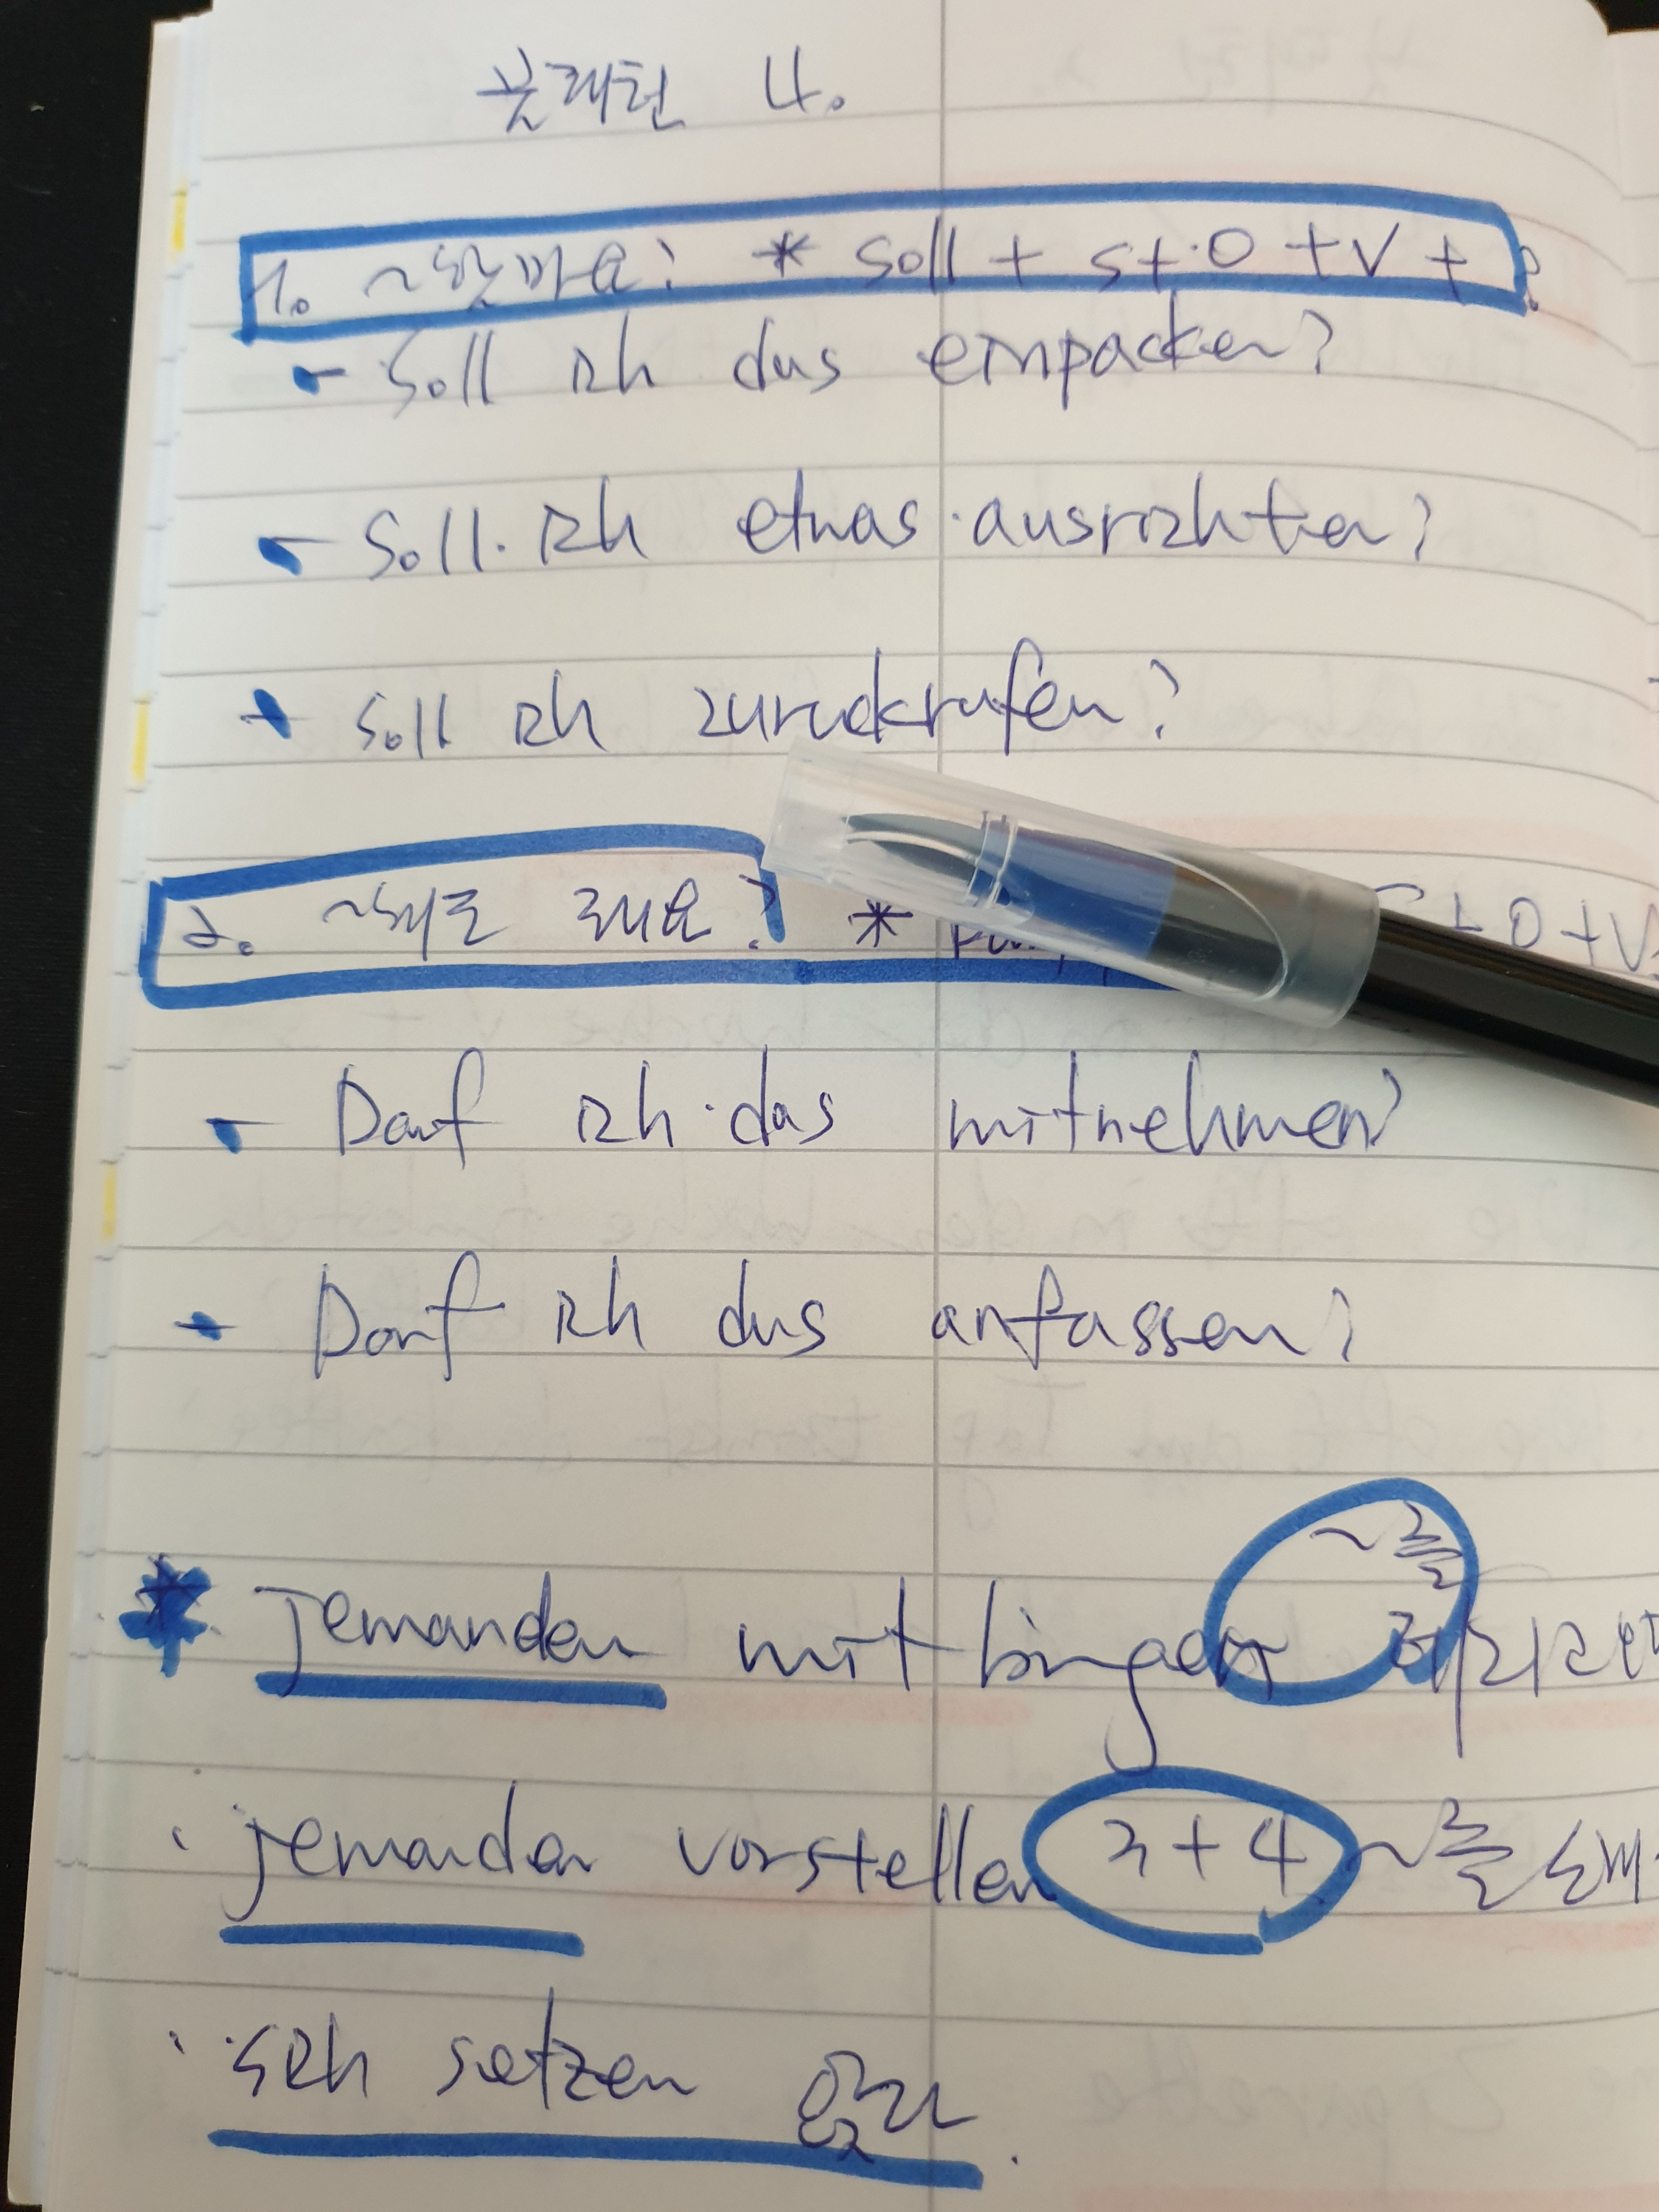 문패턴 4.
1. ~할까요? * soll + S + O + V + ?
- Soll ich das einpacken?
- Soll ich etwas ausrichten?
- Soll ich zurückrufen?
2. ~해도 돼요? * + O + V
- Darf ich das mitnehmen?
- Darf ich das anfassen?
~를
* jemanden mitbringen 데리고
· jemanden vorstellen 3+4 ~를
· sich setzen 앉다.